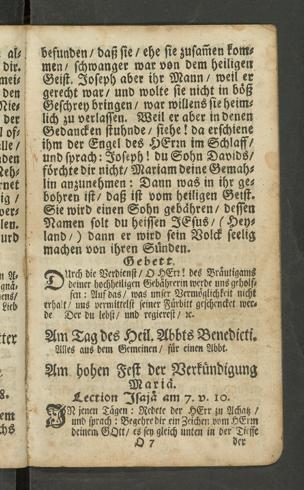 al-
dir.
mei-
den
Nie-
der
l of-
lle /
nden
Neh-
rnet
ig /
ver-
len.
urd
n A-
gnä-
ens/
Lieb
tter
8.
em
chs
befunden / daß sie / ehe sie zusam̃en kom-
men / schwanger war von dem heiligen
Geist. Joseph aber ihr Mann / weil er
gerecht war / und wolte sie nicht in böß
Geschrey bringen / war willens sie heim-
lich zu verlassen. Weil er aber in denen
Gedancken stuhnde / siehe! da erschiene
ihm der Engel des HErrn im Schlaff /
und sprach: Joseph! du Sohn Davids /
förchte dir nicht / Mariam deine Gemah-
lin anzunehmen: Dann was in ihr ge-
bohren ist / daß ist vom heiligen Geist.
Sie wird einen Sohn gebähren / dessen
Namen solt du heissen JEsus / (Hey-
land /) dann er wird sein Volck seelig
machen von ihren Sünden.
Gebett.
DUrch die Verdienst / O HErr! des Bräutigams
deiner hochheiligen Gebährerin werde uns geholf-
fen: Auf das / was unser Vermöglichkeit nicht
erhalt / uns vermittelst seiner Fürbitt geschencket wer-
de Der du lebst / und regierest / ꝛc.
Am Tag des Heil. Abbts Benedicti.
Alles aus dem Gemeinen / für einen Abbt.
Am hohen Fest der Verkündigung
Mariä.
Lection Isajä am 7. v. 10.
IN jenen Tägen: Redete der HErr zu Achatz /
und sprach: Begehre dir ein Zeichen vom HErrn
deinem GOtt / es sey gleich unten in der Tieffe
O 7 der